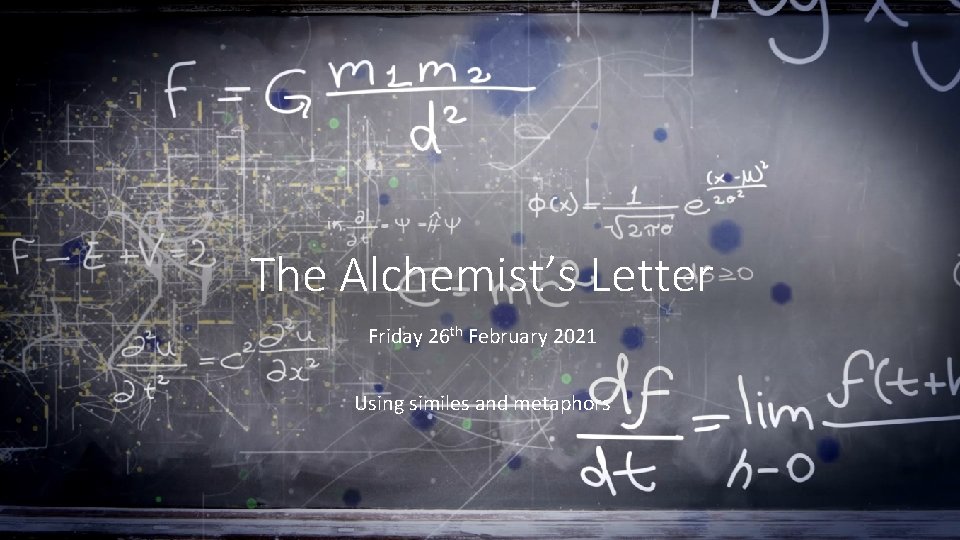 F = G m1m2 / d²
ϕ(x) = 1 / √2πσ e (x-μ)² / 2σ²
iħ ∂ / ∂t Ψ = ĤΨ
F - E + V = 2
The Alchemist’s Letter
E = mc²
dS ≥ 0
Friday 26th February 2021
∂²u / ∂t² = c² ∂²u / ∂x²
Using similes and metaphors
df / dt = lim h-0 f(t+h